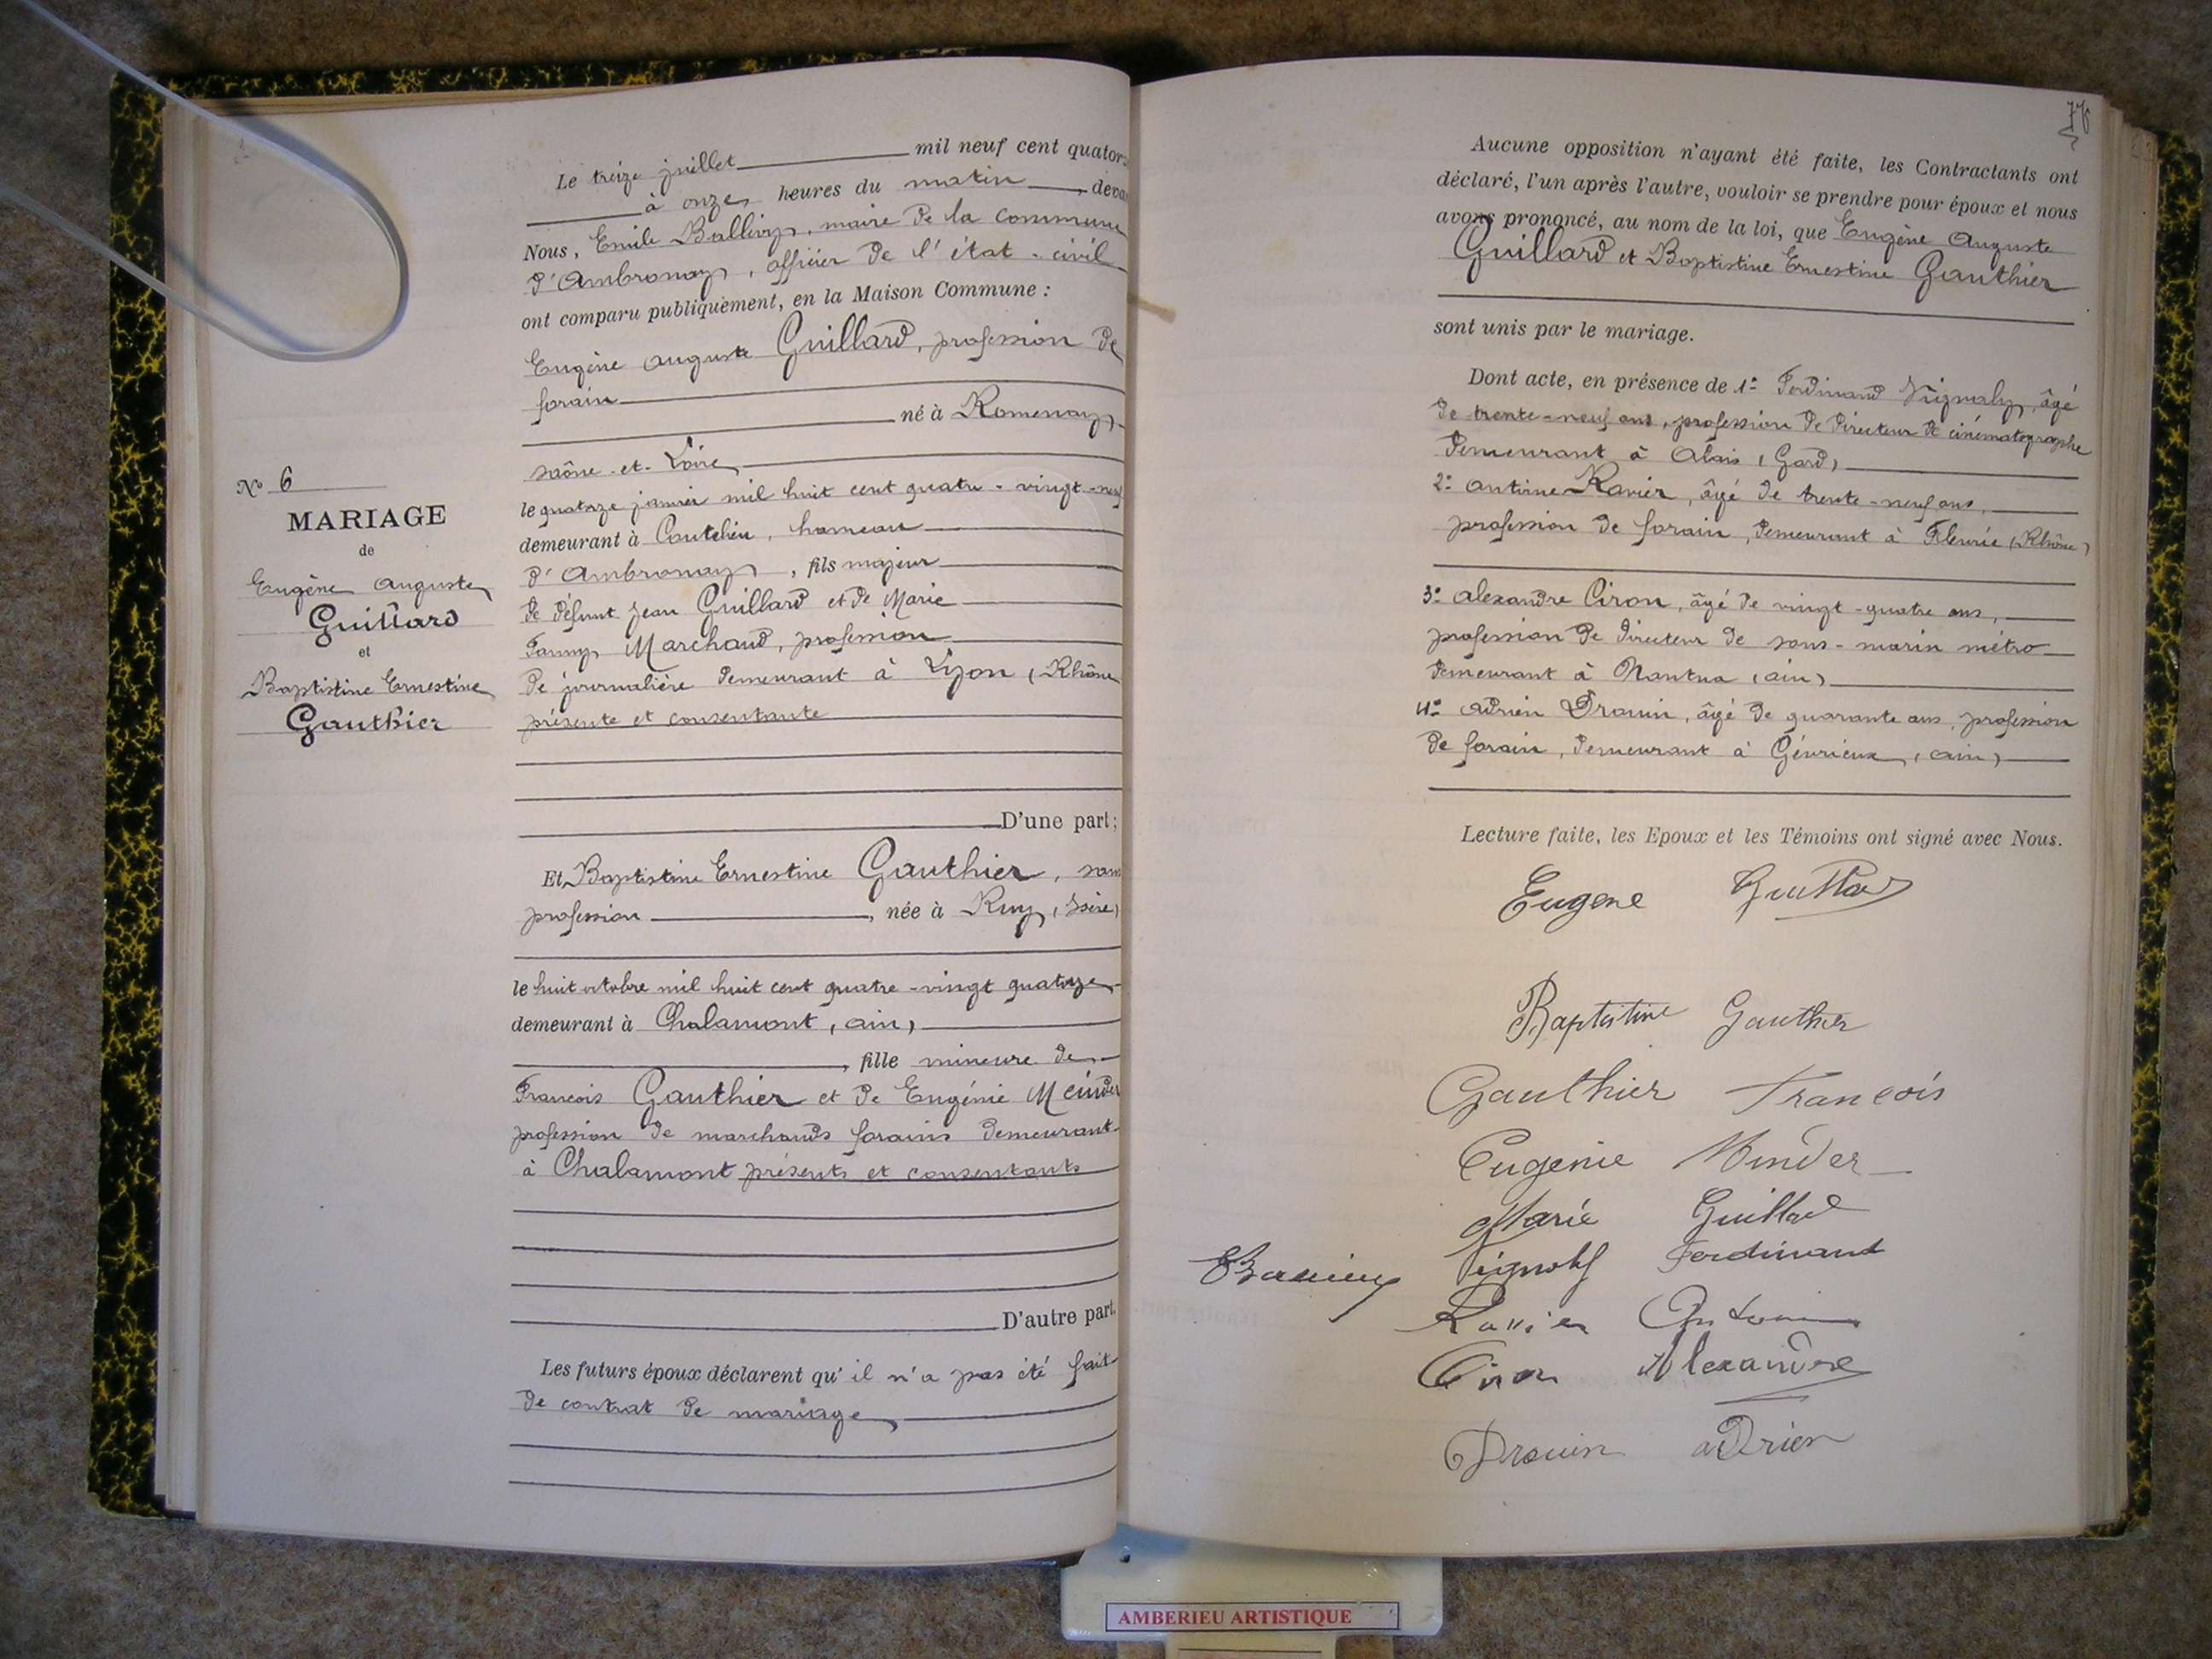 Le treize juillet mil neuf cent quator
à onze heures du matin deva
Nous, Emile Ballivy, maire de la commune
d'Ambronay, officier de l'état-civil
ont comparu publiquement, en la Maison Commune :
Eugène Auguste Guillard, profession de
forain
né à Romenay
saône-et-Loire
le quatorze janvier mil huit cent quatre-vingt-neuf
demeurant à Coutelieu, hameau
d'Ambronay, fils majeur
de défunt Jean Guillard et de Marie
Fanny Marchand, profession
de journalière demeurant à Lyon (Rhône
présente et consentante
D'une part;
Et Baptistine Ernestine Gauthier, sans
profession , née à Ruy, (Isère)
le huit octobre mil huit cent quatre-vingt quatorze
demeurant à Chalamont, (ain)
, fille mineure de
Francois Gauthier et de Eugénie Meinder
profession de marchands forains demeurant
à Chalamont présents et consentants
D'autre part.
Les futurs époux déclarent qu'il n'a pas été fait
de contrat de mariage
N° 6
MARIAGE
de
Eugène Auguste
Guillard
et
Baptistine Ernestine
Gauthier
76
Aucune opposition n'ayant été faite, les Contractants ont
déclaré, l'un après l'autre, vouloir se prendre pour époux et nous
avons prononcé, au nom de la loi, que Eugène Auguste
Guillard et Baptistine Ernestine Gauthier
sont unis par le mariage.
Dont acte, en présence de 1° Ferdinand Vignaly, âgé
de trente-neuf ans, profession de directeur de cinématographe
demeurant à Alais (Gard)
2° antoine Ravier, âgé de trente-neuf ans,
profession de forain, demeurant à Fleurie (Rhône)
3° alexandre Ciron, âgé de vingt-quatre ans,
profession de directeur de sous-marin métro
demeurant à Nantua (ain)
4° adrien Drouin, âgé de quarante ans, profession
de forain, demeurant à Gévrieux, (ain)
Lecture faite, les Epoux et les Témoins ont signé avec Nous.
Eugene Guillard
Baptistine Gauthier
Gauthier Francois
Eugenie Minder
Marie Guillard
Ferdinand
Ravier Antoine
Ciron Alexandre
Drouin adrien
AMBERIEU ARTISTIQUE